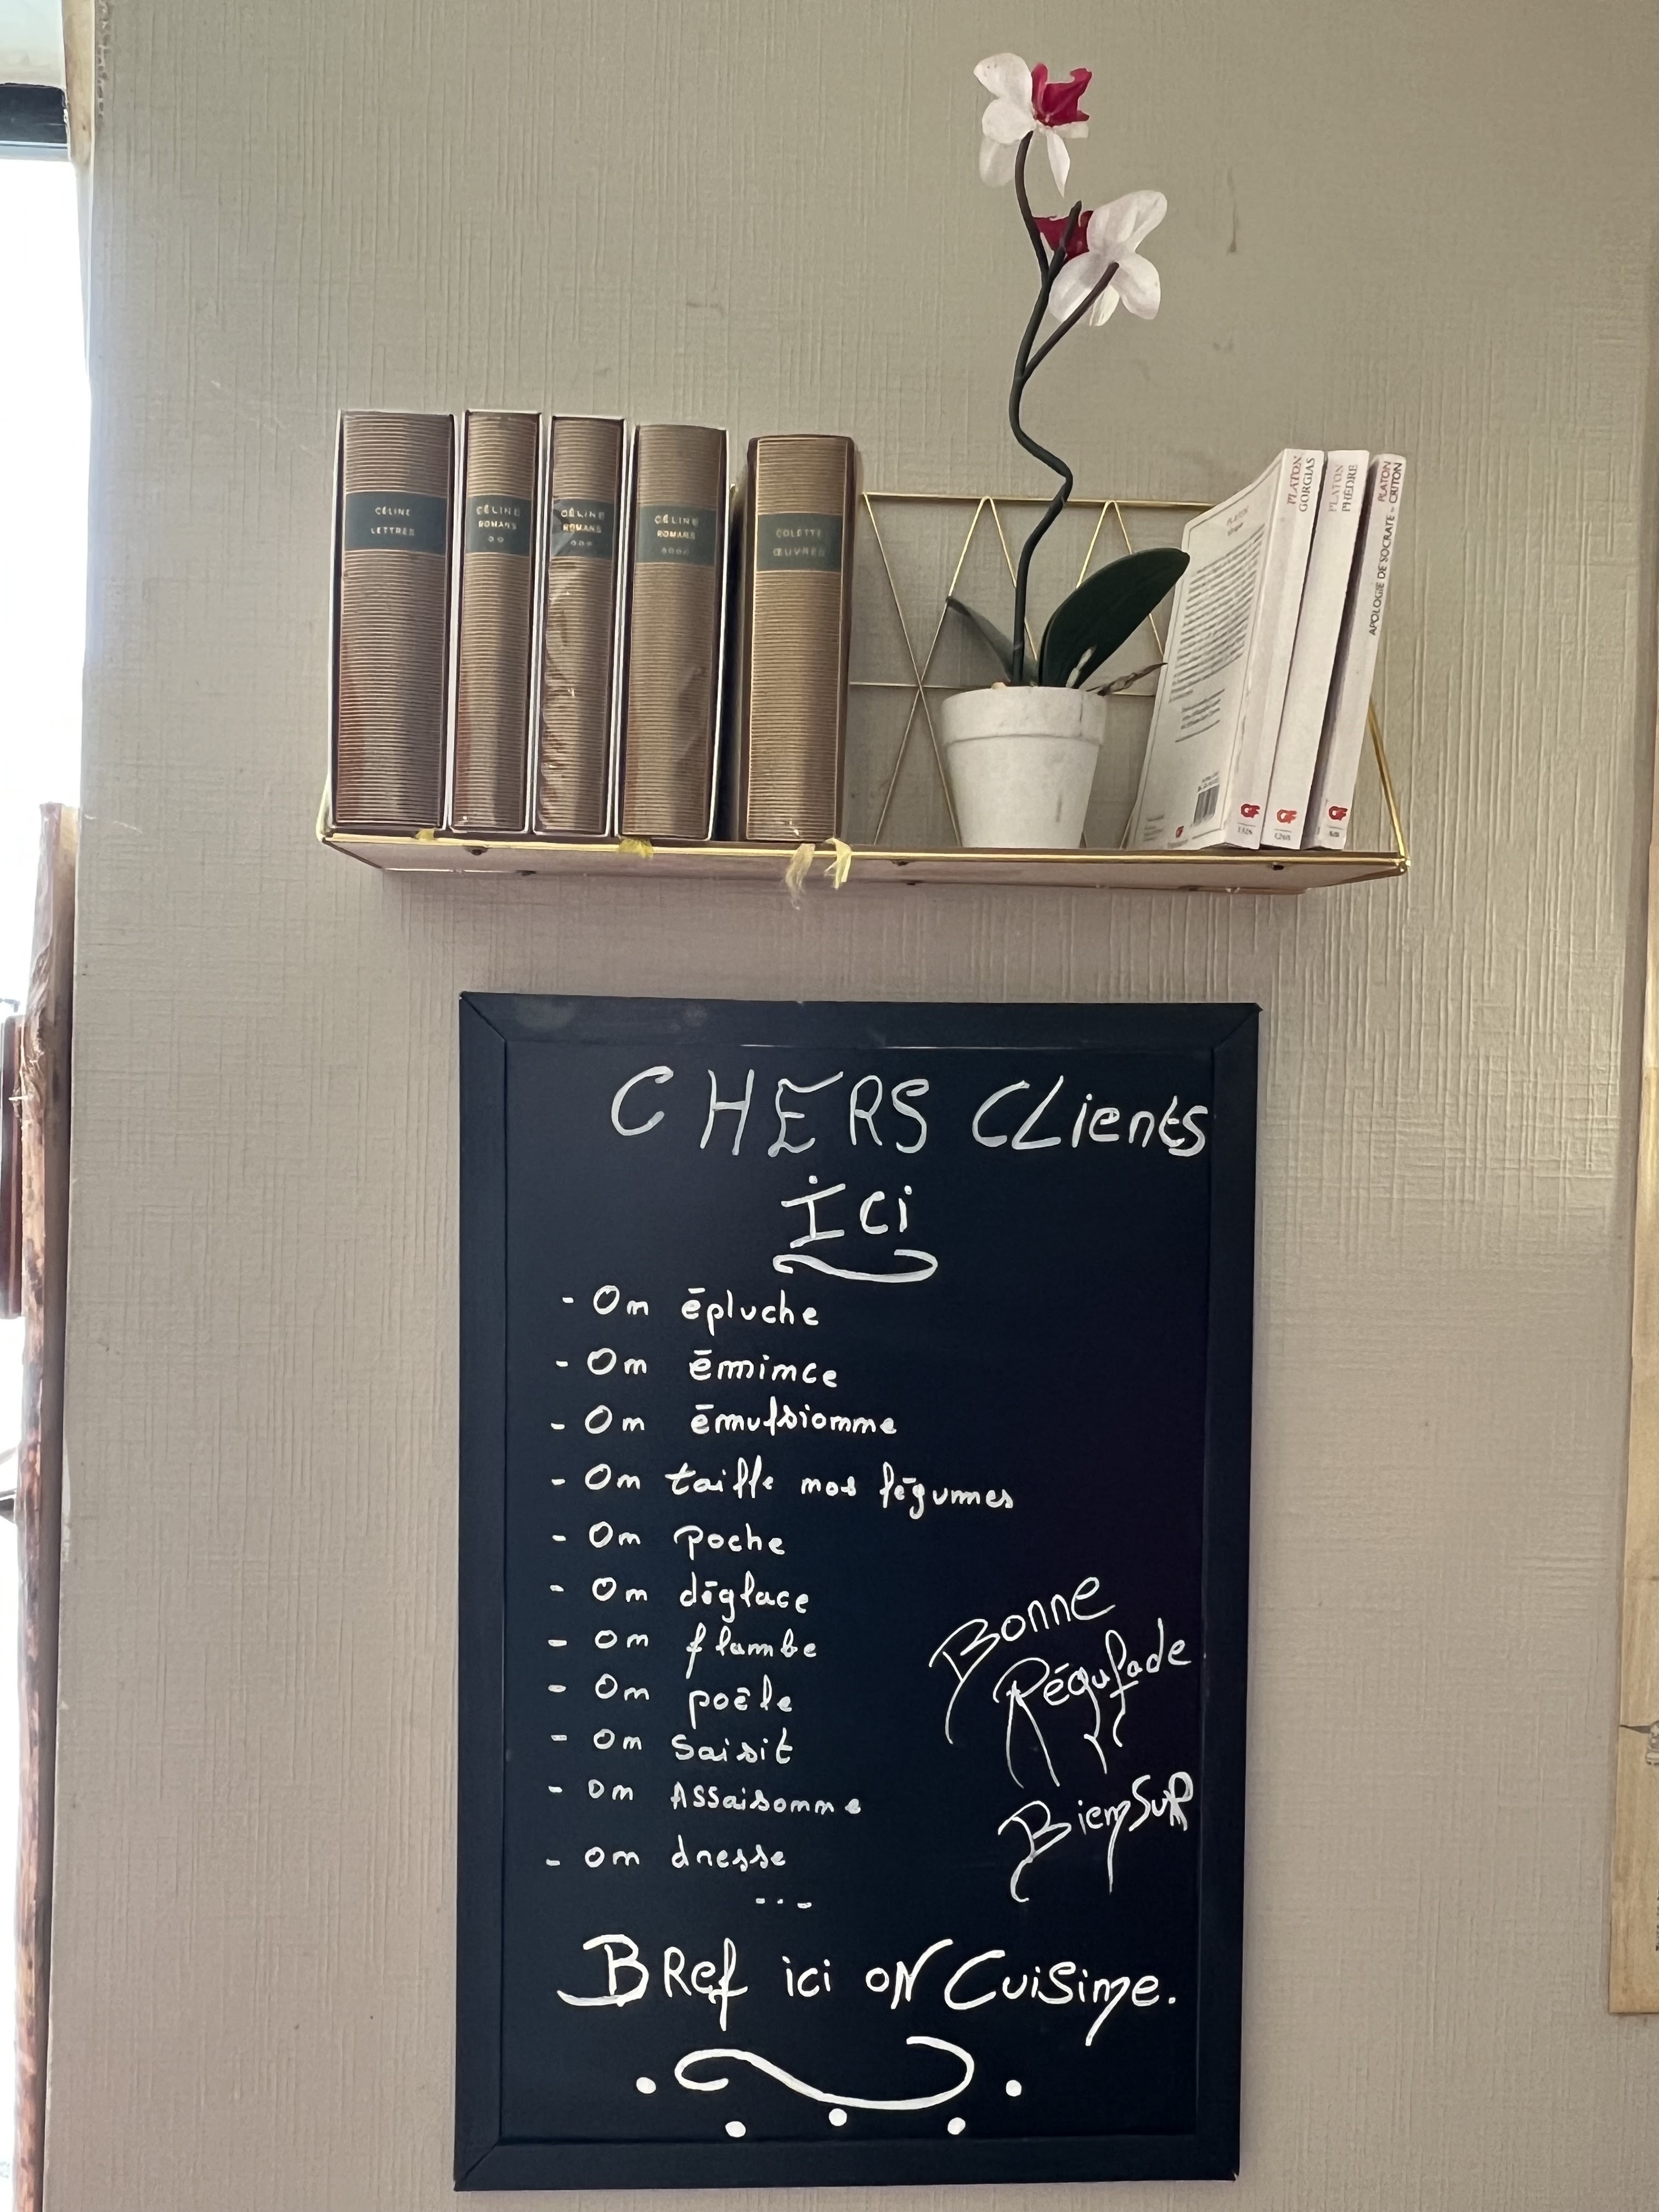 CÉLINE
LETTRES
CÉLINE
ROMANS
CÉLINE
ROMANS
CÉLINE
ROMANS
COLETTE
ŒUVRES
PLATON
GORGIAS
PLATON
PHÈDRE
PLATON
APOLOGIE DE SOCRATE - CRITON
GF
GF
GF
GF
CHERS CLients
Ici
- On épluche
- On émince
- On émulsionne
- On taille nos légumes
- On poche
- On déglace
- On flambe
- On poêle
- On saisit
- On ASSaisonne
- on dresse
...
Bonne
Régulade
Bien SuR
BRef ici oN Cuisine.